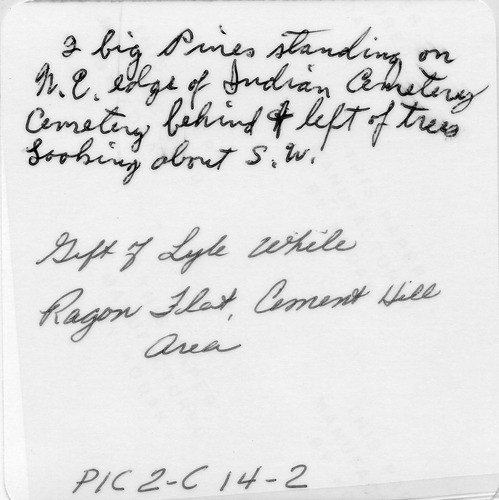 2 big Pines standing on
N.E. edge of Indian Cemetery
Cemetery behind & left of trees
Looking about S.W.
Gift of Lyle White
Ragon Flat, Cement Hill
Area
PIC 2-C 14-2